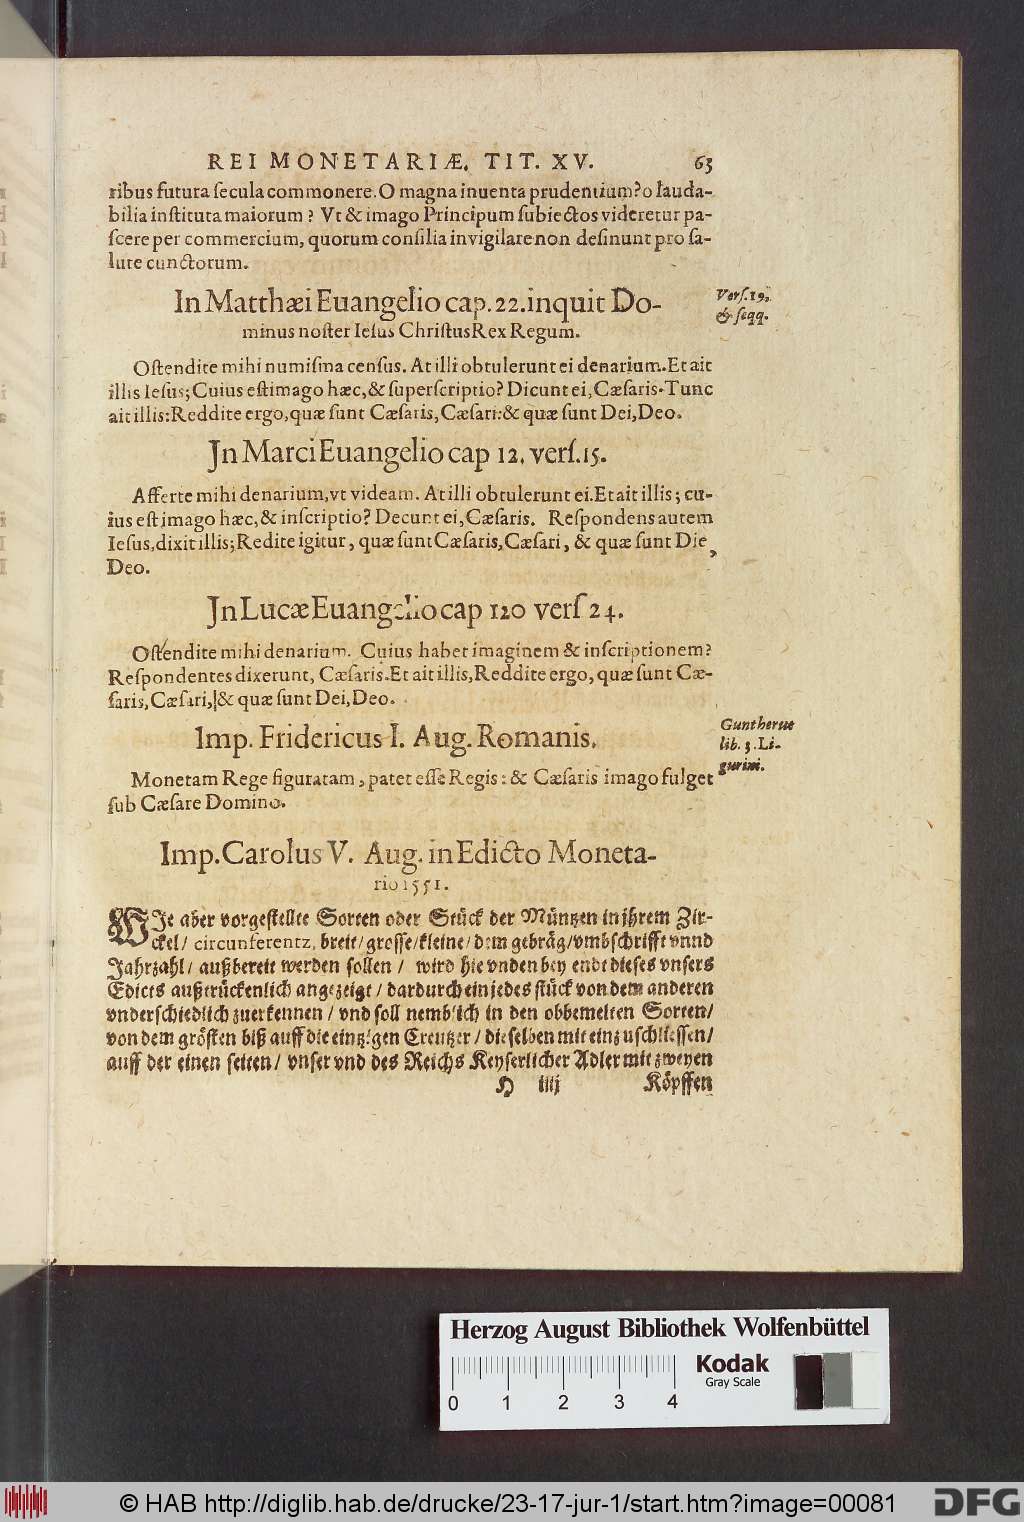 REI MONETARIÆ. TIT. XV. 63
ribus futura ſecula commonere. O magna inuenta prudentium? o lauda-
bilia inſtituta maiorum? Vt & imago Principum ſubiectos videretur pa-
ſcere per commercium, quorum conſilia invigilare non deſinunt pro ſa-
lute cunctorum.
In Matthæi Euangelio cap. 22. inquit Do-
minus noſter Ieſus Chriſtus Rex Regum.
Verſ. 19.
& ſeqq.
Oſtendite mihi numiſma cenſus. At illi obtulerunt ei denarium. Et ait
illis Ieſus; Cuius eſt imago hæc, & ſuperſcriptio? Dicunt ei, Cæſaris. Tunc
ait illis: Reddite ergo, quæ ſunt Cæſaris, Cæſari: & quæ ſunt Dei, Deo.
Jn Marci Euangelio cap 12. verſ. 15.
Afferte mihi denarium, vt videam. At illi obtulerunt ei. Et ait illis; cu-
ius eſt imago hæc, & inſcriptio? Decunt ei, Cæſaris. Reſpondens autem
Ieſus, dixit illis; Redite igitur, quæ ſunt Cæſaris, Cæſari, & quæ ſunt Die,
Deo.
Jn Lucæ Euangelio cap 120 verſ 24.
Oſtendite mihi denarium. Cuius habet imaginem & inſcriptionem?
Reſpondentes dixerunt, Cæſaris. Et ait illis, Reddite ergo, quæ ſunt Cæ-
ſaris, Cæſari, & quæ ſunt Dei, Deo.
Imp. Fridericus I. Aug. Romanis.
Guntherus
lib. 3. Li-
gurini.
Monetam Rege figuratam, patet eſſe Regis: & Cæſaris imago fulget
ſub Cæſare Domino.
Imp. Carolus V. Aug. in Edicto Moneta-
rio 1551.
WIe aber vorgeſtellte Sorten oder Stück der Müntzen in ihrem Zir-
ckel/ circunferentz, breit/ groſſe/ kleine/ dem gebräg/ vmbſchrifft vnnd
Jahrzahl/ außbereit werden ſollen/ wird hie vnden bey endt dieſes vnſers
Edicts außtrückenlich angezeigt/ dardurch ein jedes ſtück von dem anderen
vnderſchiedlich zuerkennen/ vnd ſoll nemblich in den obbemelten Sorten/
von dem gröſten biß auff die eintzigen Creutzer/ dieſelben mit einzuſchlieſſen/
auff der einen ſeiten/ vnſer vnd des Reichs Keyſerlicher Adler mit zweyen
H iiij Köpffen
Herzog August Bibliothek Wolfenbüttel
Kodak
Gray Scale
0 1 2 3 4
© HAB http://diglib.hab.de/drucke/23-17-jur-1/start.htm?image=00081
DFG